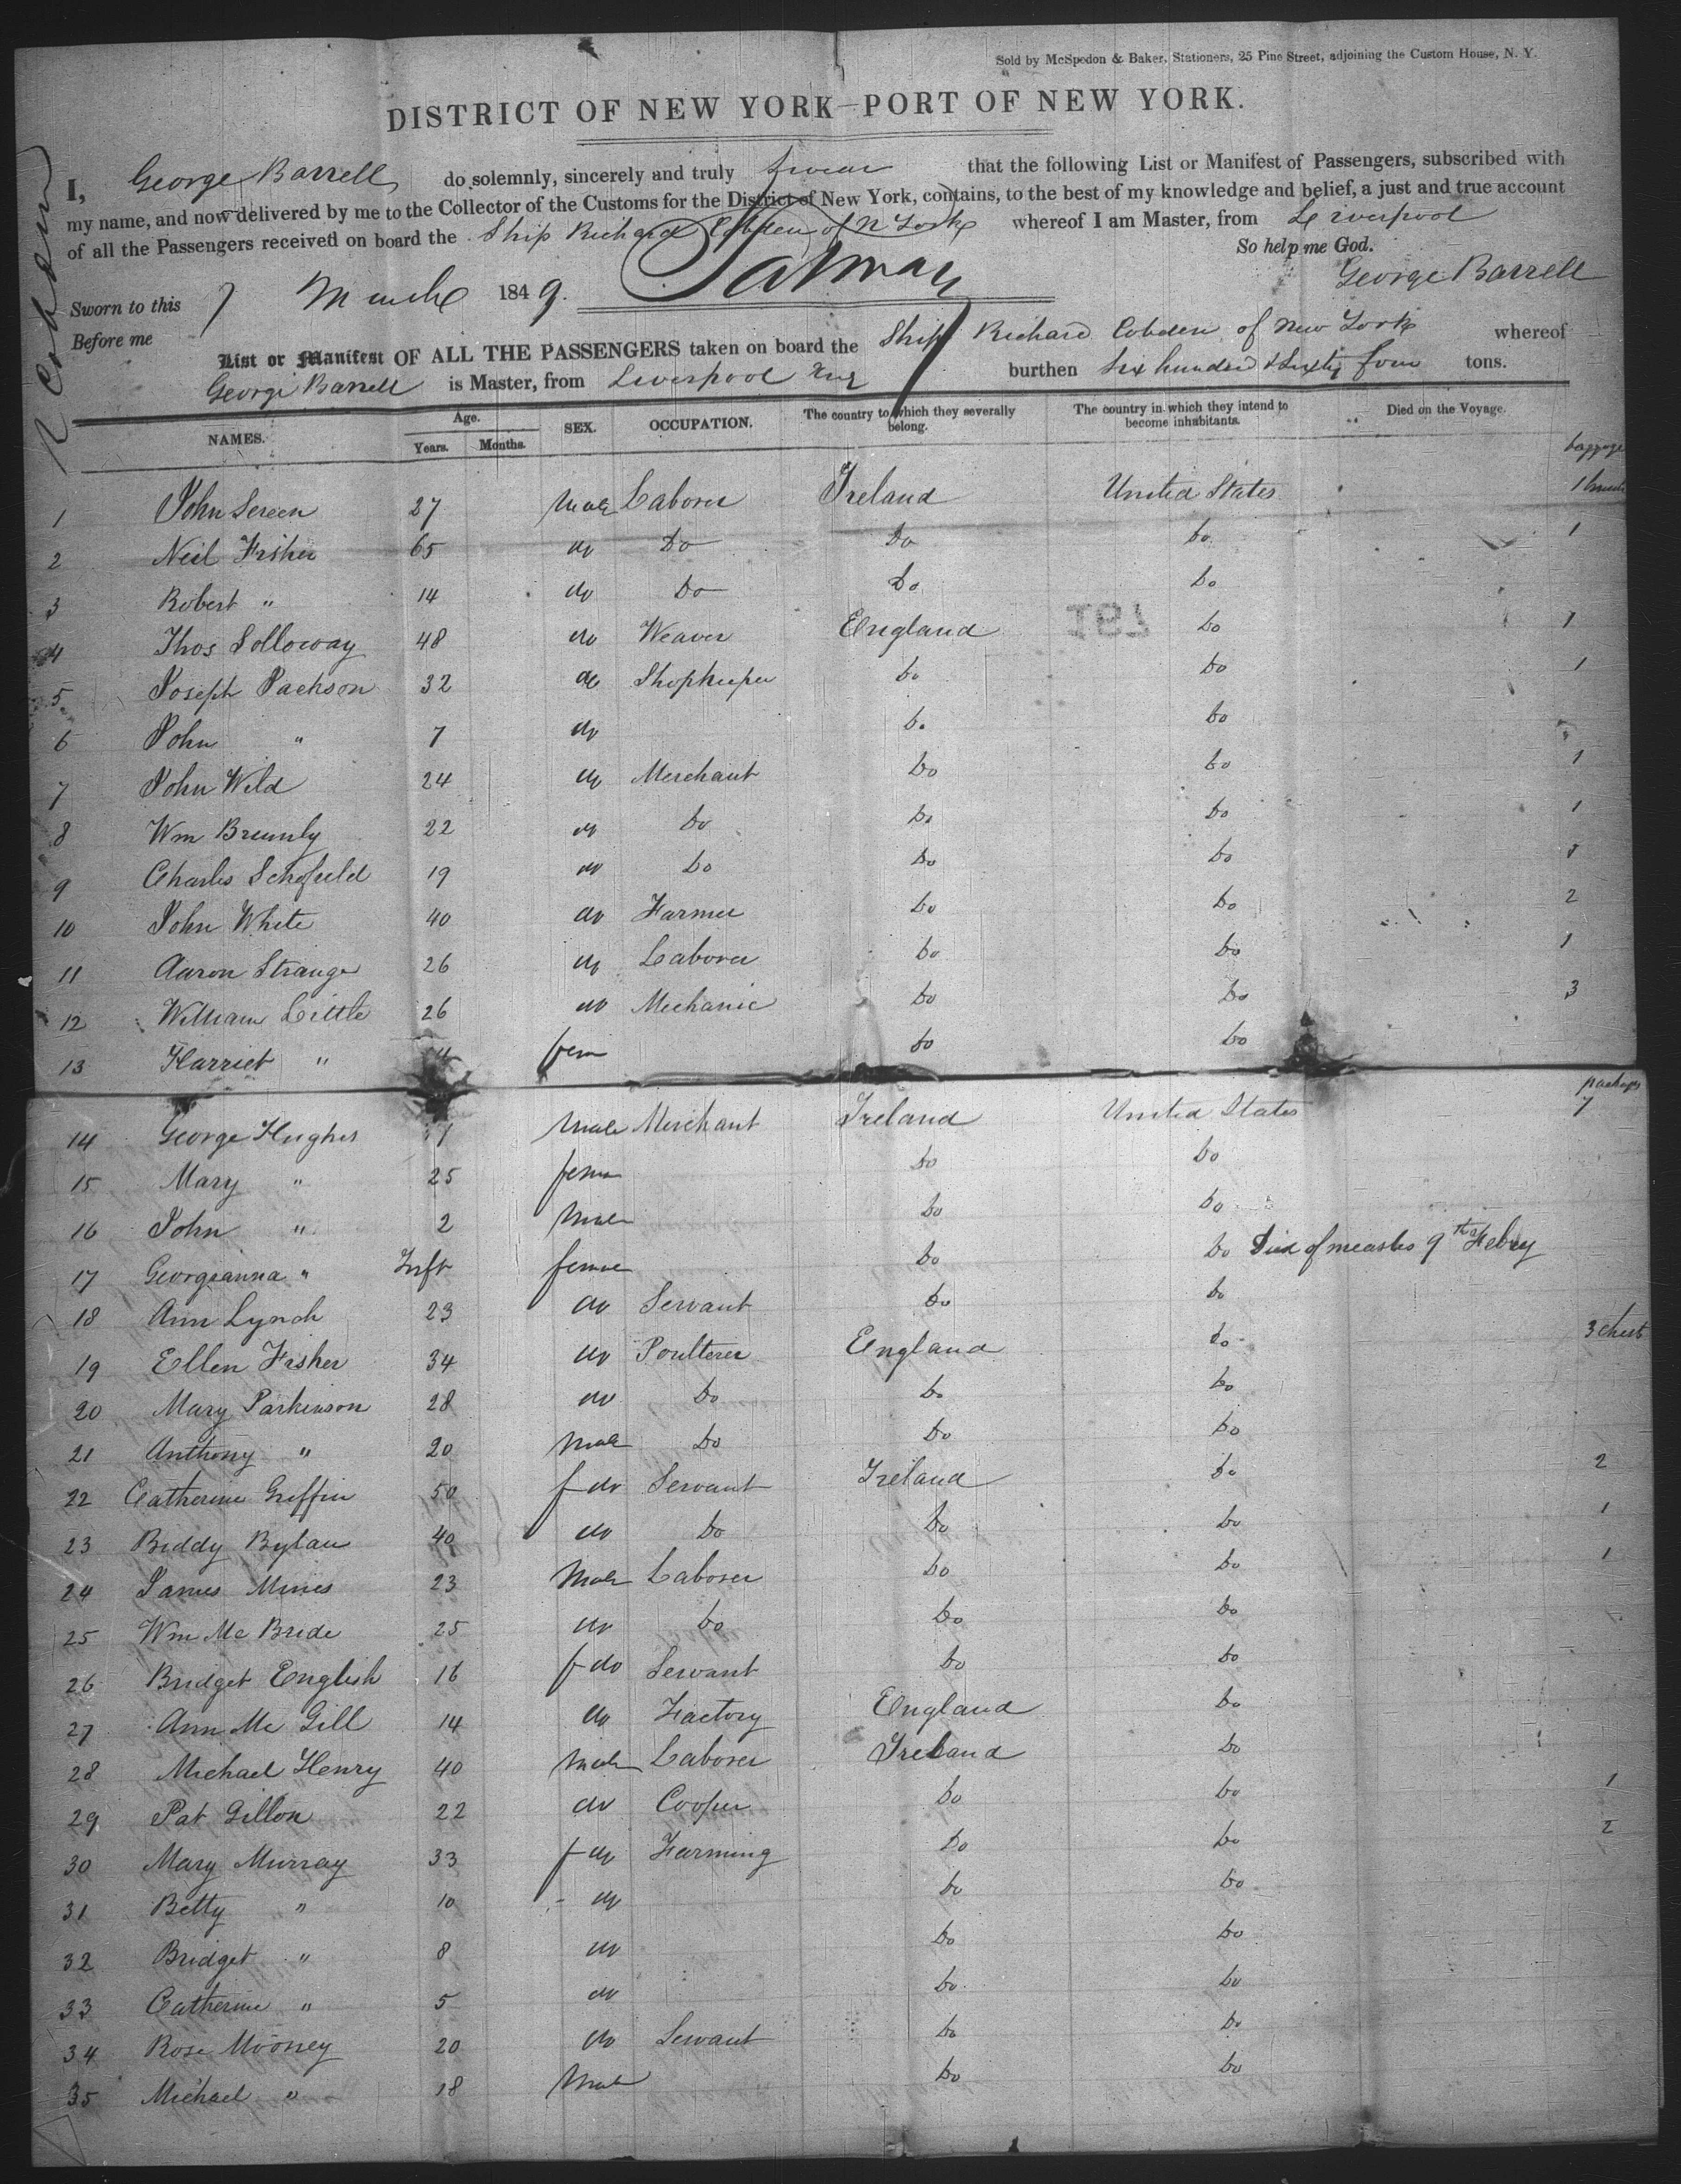 Sold by McSpedon & Baker, Stationers, 25 Pine Street, adjoining the Custom House, N. Y.
DISTRICT OF NEW YORK—PORT OF NEW YORK.
R Cobden
I, George Barrell do solemnly, sincerely and truly swear that the following List or Manifest of Passengers, subscribed with
my name, and now delivered by me to the Collector of the Customs for the District of New York, contains, to the best of my knowledge and belief, a just and true account
of all the Passengers received on board the Ship Richard Cobden of N York whereof I am Master, from Liverpool
So help me God.
Sworn to this 7 March 1849. George Barrell
Before me
List or Manifest OF ALL THE PASSENGERS taken on board the Ship Richard Cobden of New York whereof
George Barrell is Master, from Liverpool Eng burthen Six hundred & Sixty four tons.
NAMES. Age. Years. Months. SEX. OCCUPATION. The country to which they severally belong. The country in which they intend to become inhabitants. Died on the Voyage. baggage
1 John Sereen 27 Male Laborer Ireland United States 1
2 Neil Fisher 65 do Do Do Do 1
3 Robert " 14 do Do Do Do
4 Thos Solloway 48 do Weaver England Do 1
197
5 Joseph Jackson 32 do Shopkeeper Do Do 1
6 John " 7 do Do Do
7 John Wild 24 do Merchant Do Do 1
8 Wm 22 do Do Do Do 1
9 Charles Schofield 19 do Do Do Do
10 John White 40 do Farmer Do Do 2
11 Aaron Strange 26 do Laborer Do Do 1
12 William Little 26 do Mechanic Do Do 3
13 Harriet " fem Do Do
packages
14 George Hughes Male Merchant Ireland United States 7
15 Mary " 25 feme Do Do
16 John " 2 Male Do Do
17 Georgeanna " Inft feme Do Do Died of measles 9th Febry
18 Ann Lynch 23 do Servant Do Do
19 Ellen Fisher 34 do Poulterer England Do 3 chest
20 Mary Parkinson 28 do Do Do Do
21 Anthony " 20 Male Do Do Do
22 Catherine Griffin 50 f do Servant Ireland Do 2
23 Biddy Bylan 40 do Do Do Do 1
24 James Mines 23 Male Laborer Do Do 1
25 Wm Mc Bride 25 do Do Do Do
26 Bridget English 16 f do Servant Do Do
27 Ann Mc Gill 14 do Factory England Do
28 Michael Henry 40 Male Laborer Ireland Do
29 Pat Gillon 22 do Cooper Do Do 1
30 Mary Murray 33 f do Farming Do Do 2
31 Betty " 10 do Do Do
32 Bridget " 8 do Do Do
33 Catherine " 5 do Do Do
34 Rose Mooney 20 do Servant Do Do
35 Michael " 18 Male Do Do